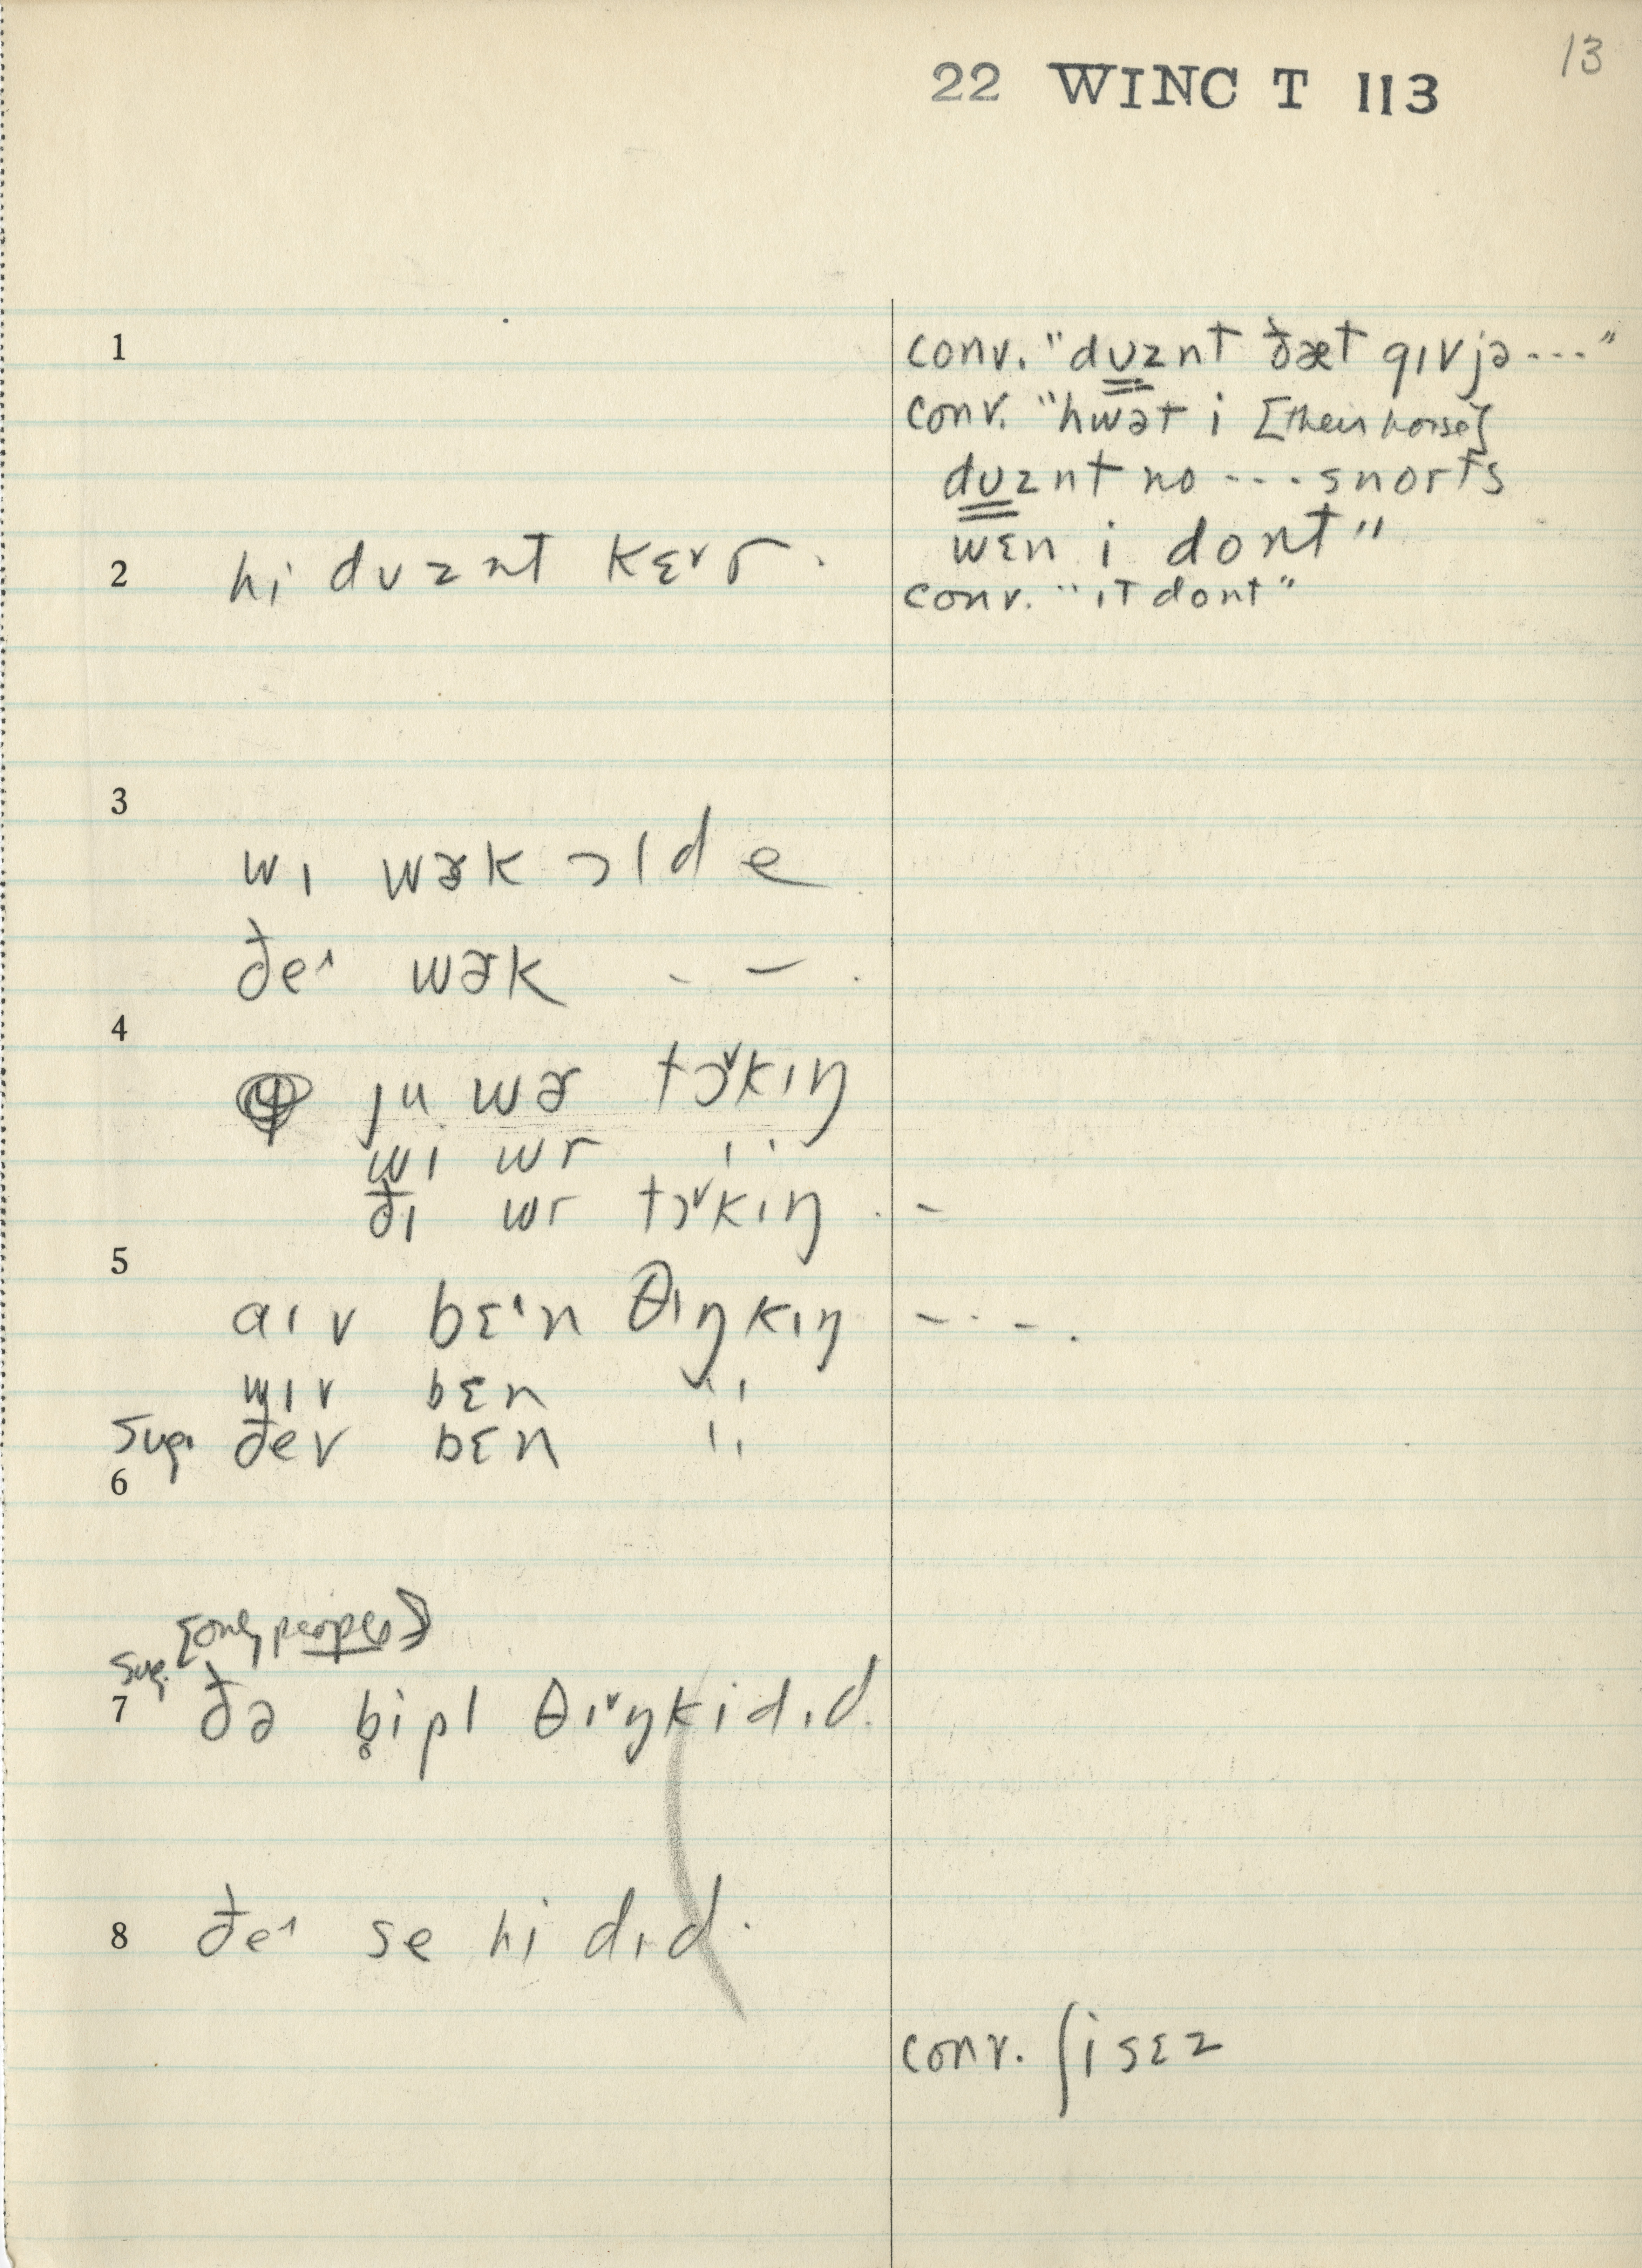 13
22 WINC T 113
1
conv. "dʊznt ðæt gɪvjə ---"
conv. "hwət i [their horse]
dʊznt no --- snorts
wɛn i dont"
2 hi dʊznt kɛ˅r .
conv. "ɪt dont"
3
wɪ wɚk ɔl d e
ðe˄ wɚk - – .
4
ju wɚ tɔ˅kɪŋ
wɪ wr "
ðɪ wr tɔ˅kɪŋ . -
5
aɪv bɛ˄n θɪŋkɪŋ - - - .
wɪv bɛn "
sug. ðev bɛn "
6
[only people]
sug.
7 ðə b̥ipl θɪ˅ŋk i dɪd.
8 ðe˄ se hi dɪd.
conv. ʃi sɛz